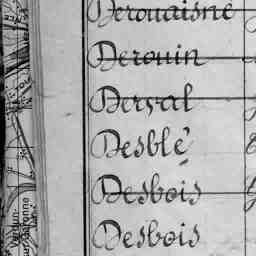 Derouaisné
Derouin
Derval
Desblé
Desbois
Desbois